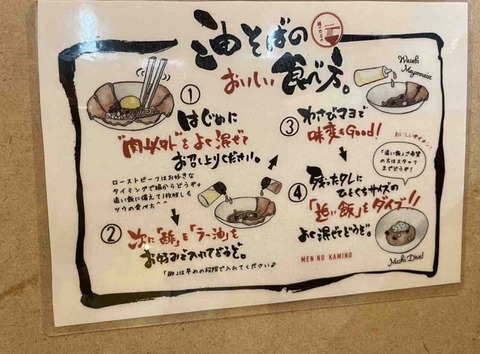 油そばの
おいしい食べ方。
①
はじめに
"肉以外"をよく混ぜて
お召し上りください。
ローストビーフはお好きな
タイミングで端からどうぞ。
追い飯に備えて1枚残しも
ツウの食べ方
②
次に「酢」を「ラー油」を
お好みで入れてどうぞ。
③
わさびマヨで
味変もGood!
Wasabi
Mayonnaise
④
残ったタレに
ひとくちサイズの
「追い飯」をダイブ!!
よく混ぜてどうぞ。
おいしいサイズ!
「追い飯」ご希望
の方はスタッフ
までどうぞ!
MEN NO KAMINO
Meshi Dive!